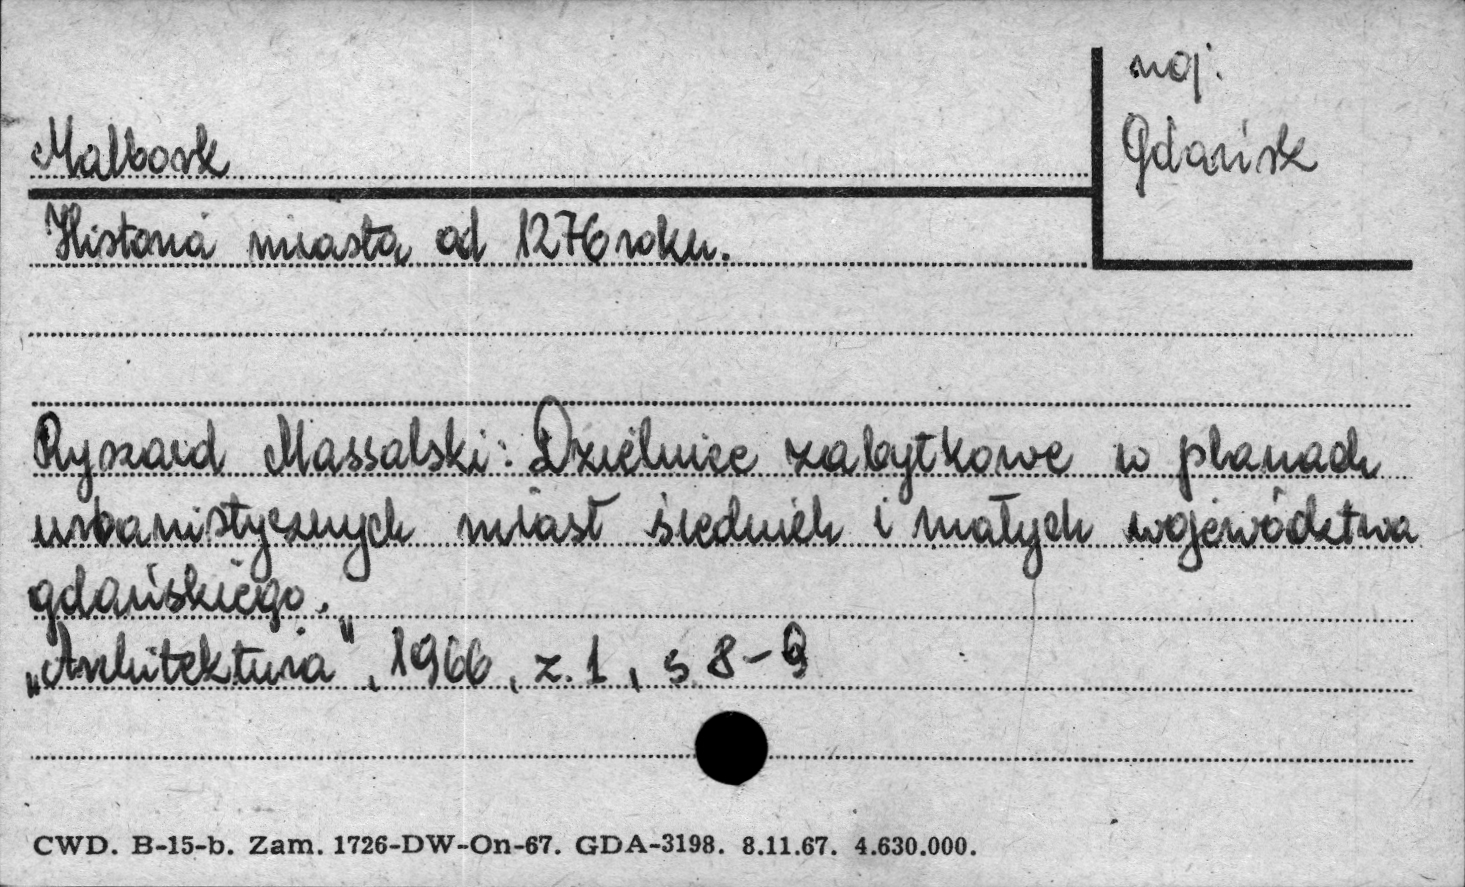 woj.
Gdańsk
Malbork
Historia miasta od 1276 roku.
Ryszard Massalski: Dzielnice zabytkowe w planach
urbanistycznych miast średnich i małych województwa
gdańskiego.
„Architektura", 1966, z. 1, s 8-9
CWD. B-15-b. Zam. 1726-DW-On-67. GDA-3198. 8.11.67. 4.630.000.